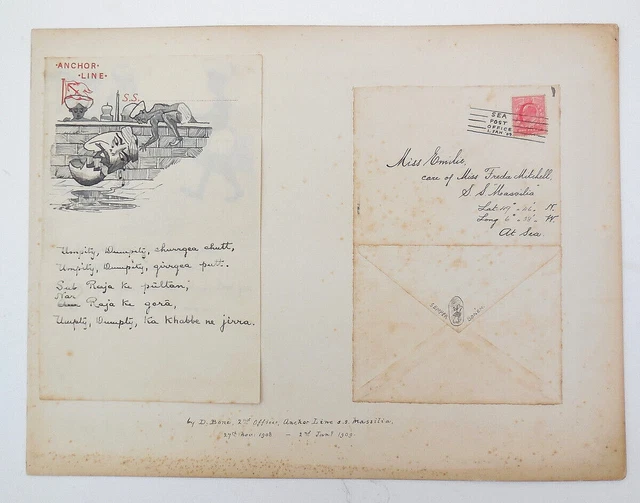 ANCHOR
LINE
S.S.
Umpity, Dumpity, churrgea chutt,
Umpity, Dumpity, girrgea putt.
Sub Raja ke pūltan,
Nar
Raja ke gorā,
Umpty, Dumpty, Ka Khabbe ne jirra.
SEA
POST
OFFICE
Miss Emilie,
care of Miss Freda Mitchell,
S S "Massilia"
N.
Long W.
At Sea.
by D. Bone, 2nd Officer, Anchor Line s.s. Massilia,
27th Nov. 1908 — 2nd Jany 1909.